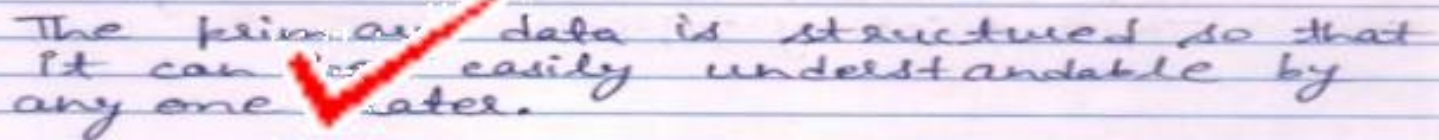 The primary data is structured so that
it can easily understandable by
any one later.